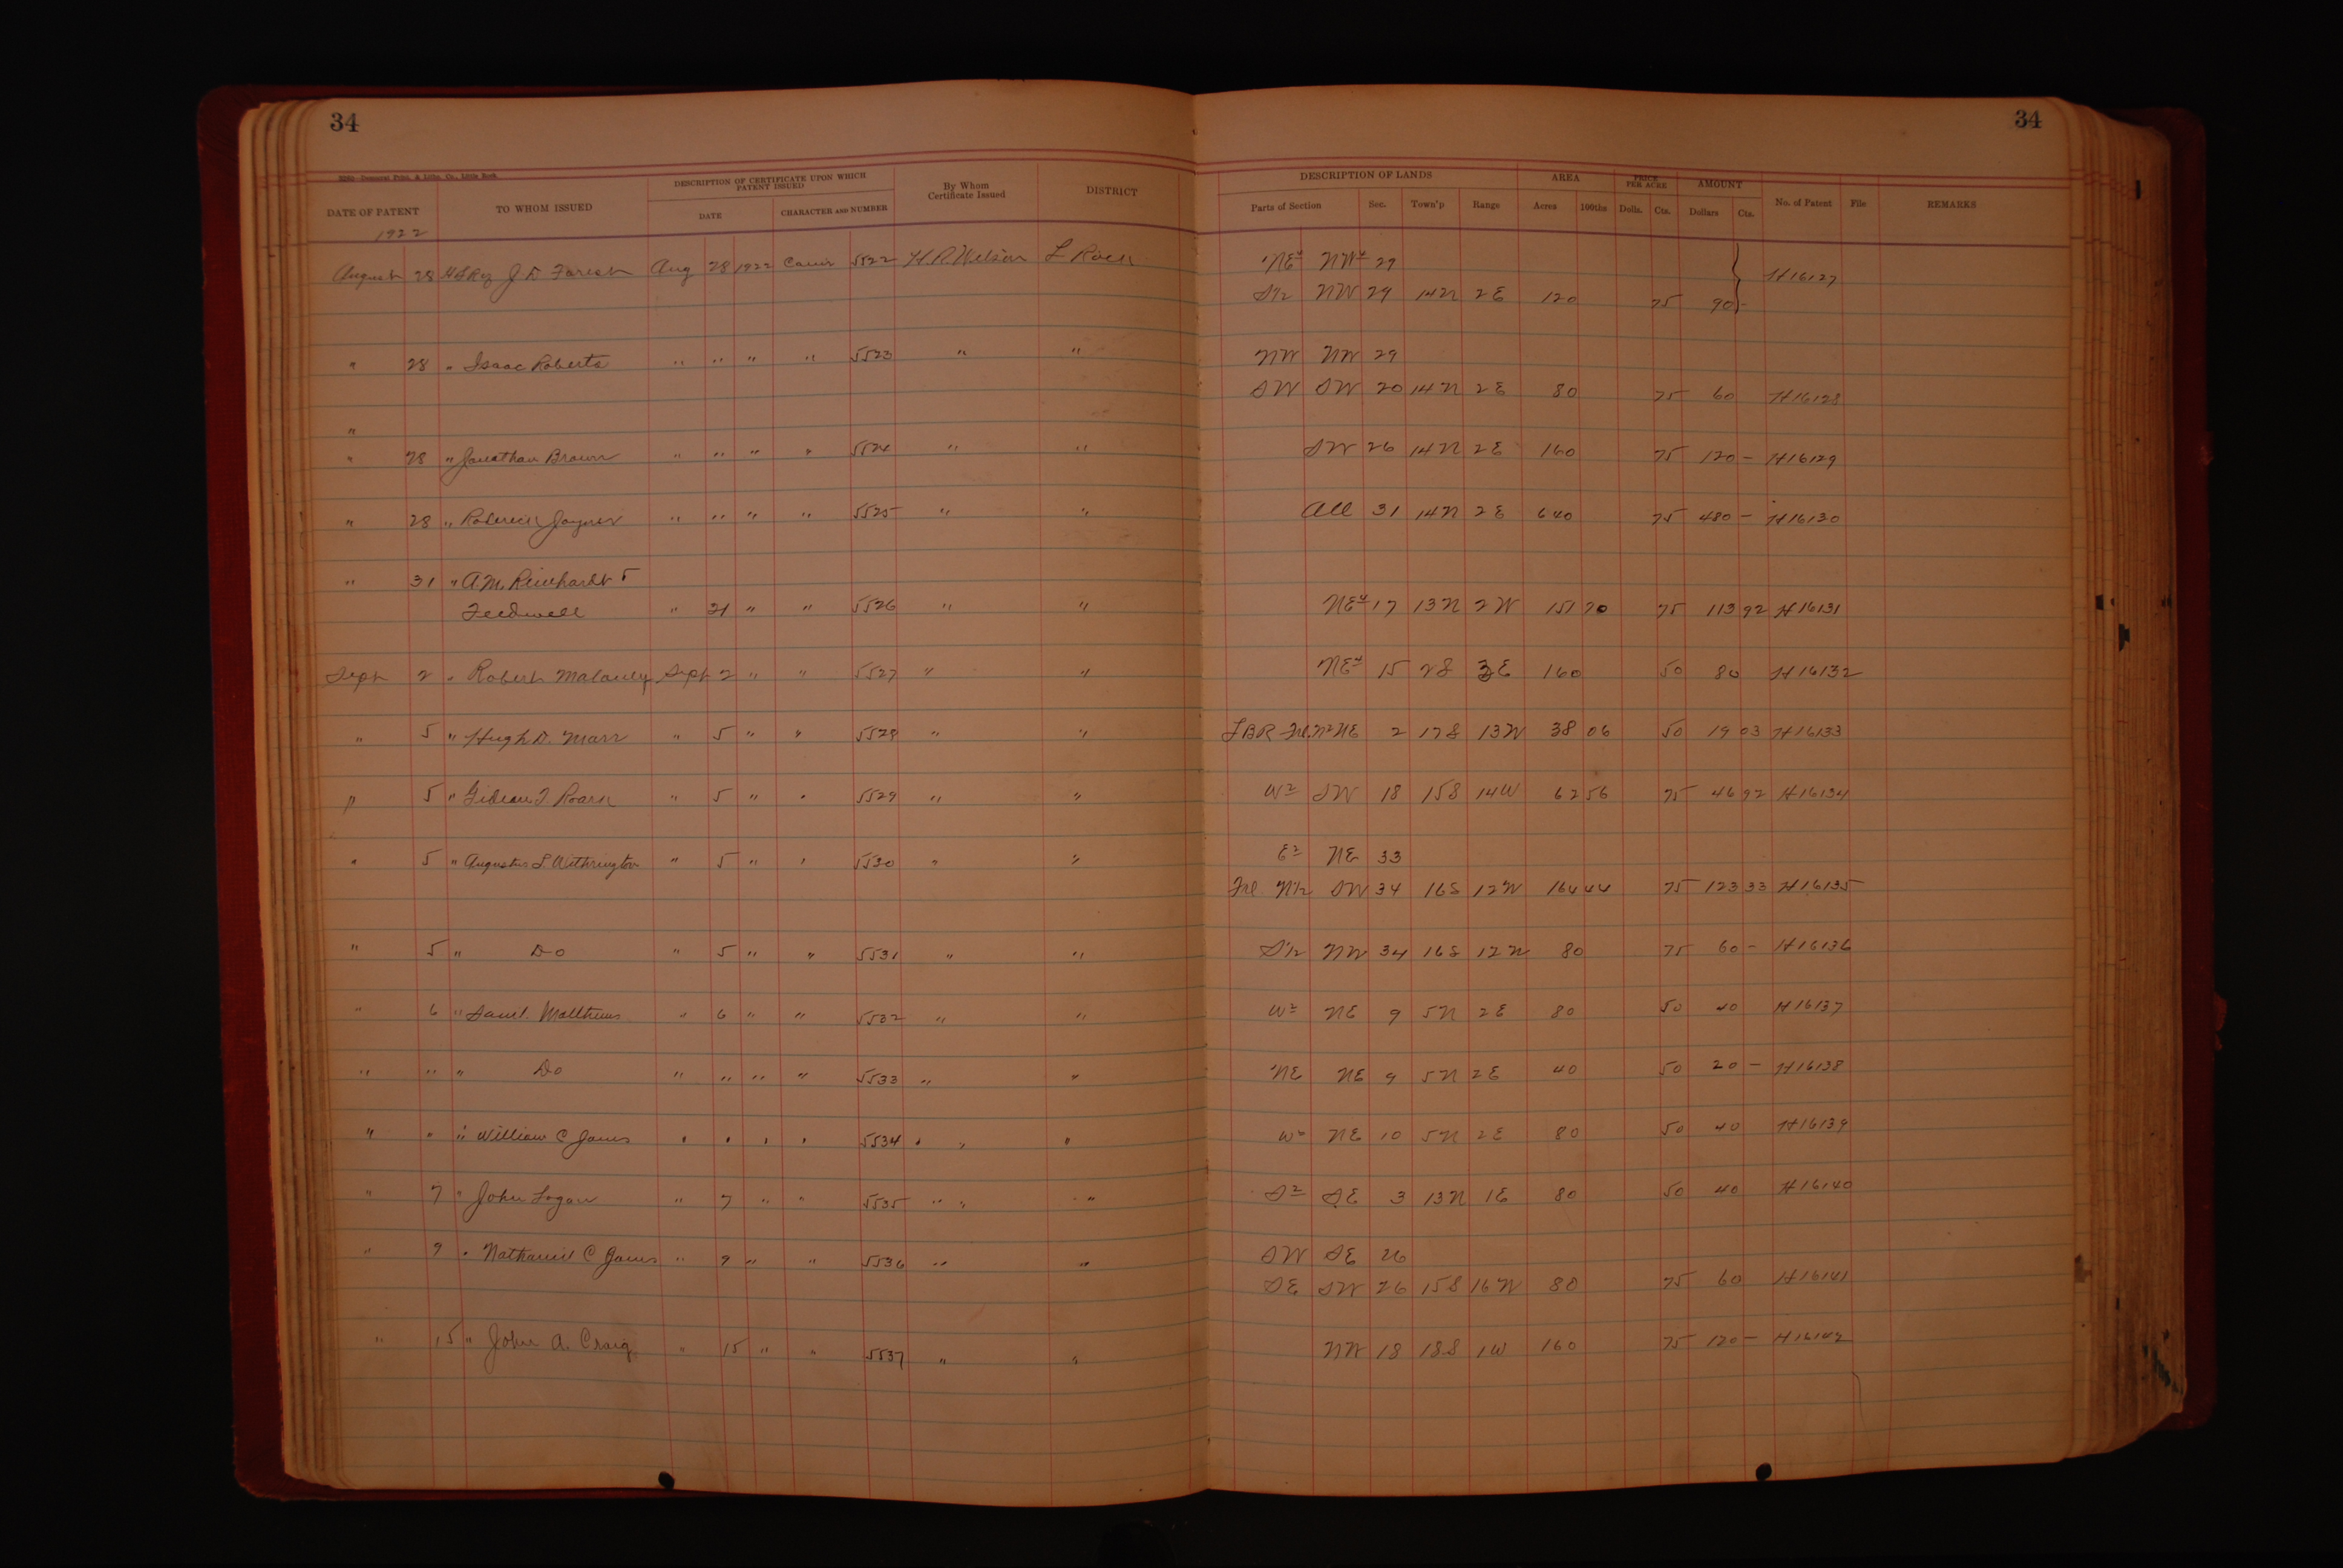 34 34
3280- Democrat Print. & Litho. Co., Little Rock
DATE OF PATENT TO WHOM ISSUED DESCRIPTION OF CERTIFICATE UPON WHICH PATENT ISSUED DATE CHARACTER AND NUMBER By Whom Certificate Issued DISTRICT DESCRIPTION OF LANDS Parts of Section Sec. Town'p Range AREA Acres 100ths PRICE PER ACRE Dolls. Cts. AMOUNT Dollars Cts. No. of Patent File REMARKS
1922
August 28 J D Forest Aug 28 1922 5522 H.R. Wilson L Rock NE4 NW4 29 H16127
S1/2 NW 29 14N 2E 120 75 90 -
" 28 " Isaac Roberts " " " " 5523 " " NW NW 29
SW SW 20 14N 2E 80 75 60 H16128
"
" 28 " Jonathan Brown " " " " 5524 " " SW 26 14N 2E 160 75 120 - H16129
" 28 " Joyner " " " " 5525 " " All 31 14N 2E 640 75 480 - H16130
" 31 " A.M. Reinhardt
Feedwell " 31 " " 5526 " " NE4 17 13N 2W 151 90 75 113 92 H16131
Sept 2 " Robert Sept 2 " " 5527 " " NE4 15 2S 3E 160 50 80 H16132
" 5 " Hugh D. Marr " 5 " " 5528 " " Frl. N2 NE 2 17S 13W 38 06 50 19 03 H16133
" 5 " Gideon Roark " 5 " " 5529 " " W2 SW 18 15S 14W 62 56 75 46 92 H16134
" 5 " Augustus L Withrington " 5 " " 5530 " " E2 NE 33
Frl N1/2 SW 34 16S 12W 164 44 75 123 33 H16135
" 5 " Do " 5 " " 5531 " " S1/2 NW 34 16S 12W 80 75 60 - H16136
" 6 " Saml. Matthews " 6 " " 5532 " " W2 NE 9 5N 2E 80 50 40 H16137
" " " Do " " " " 5533 " " NE NE 9 5N 2E 40 50 20 - H16138
" " " William C James " " " " 5534 " " " W2 NE 10 5N 2E 80 50 40 H16139
" 7 " John Logan " 7 " " 5535 " " " S2 SE 3 13N 1E 80 50 40 H16140
" 9 " Nathaniel C James " 9 " " 5536 " " SW SE 26
SE SW 26 15S 16W 80 75 60 H16141
" 15 " John A. Craig " 15 " " 5537 " " NW 18 18S 1W 160 75 120 - H16142